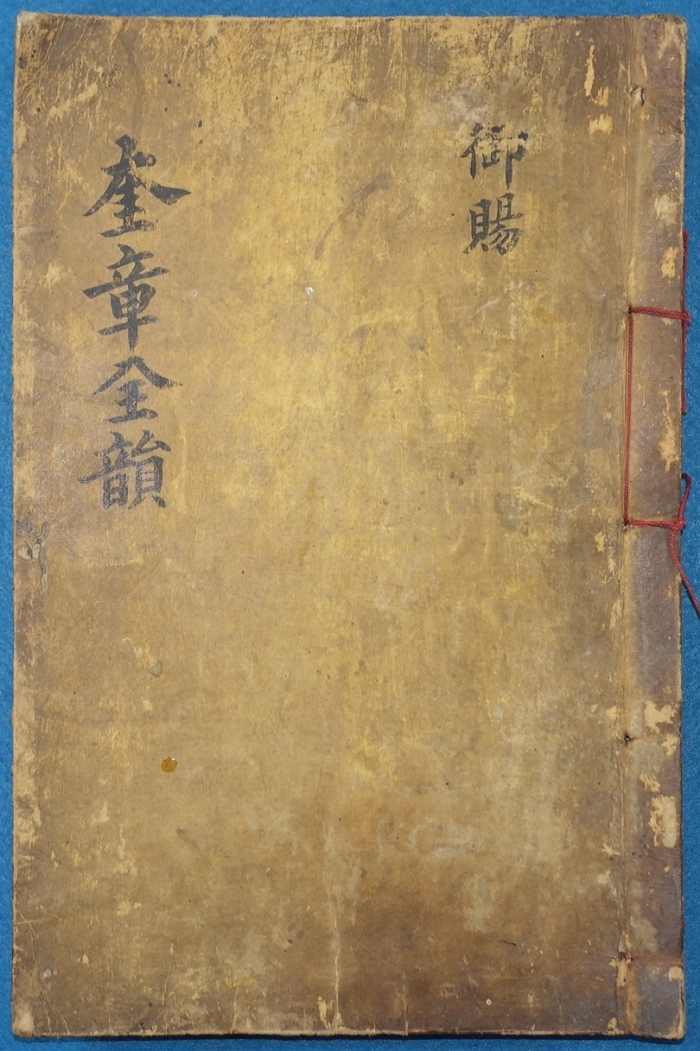 御賜
奎章全韻